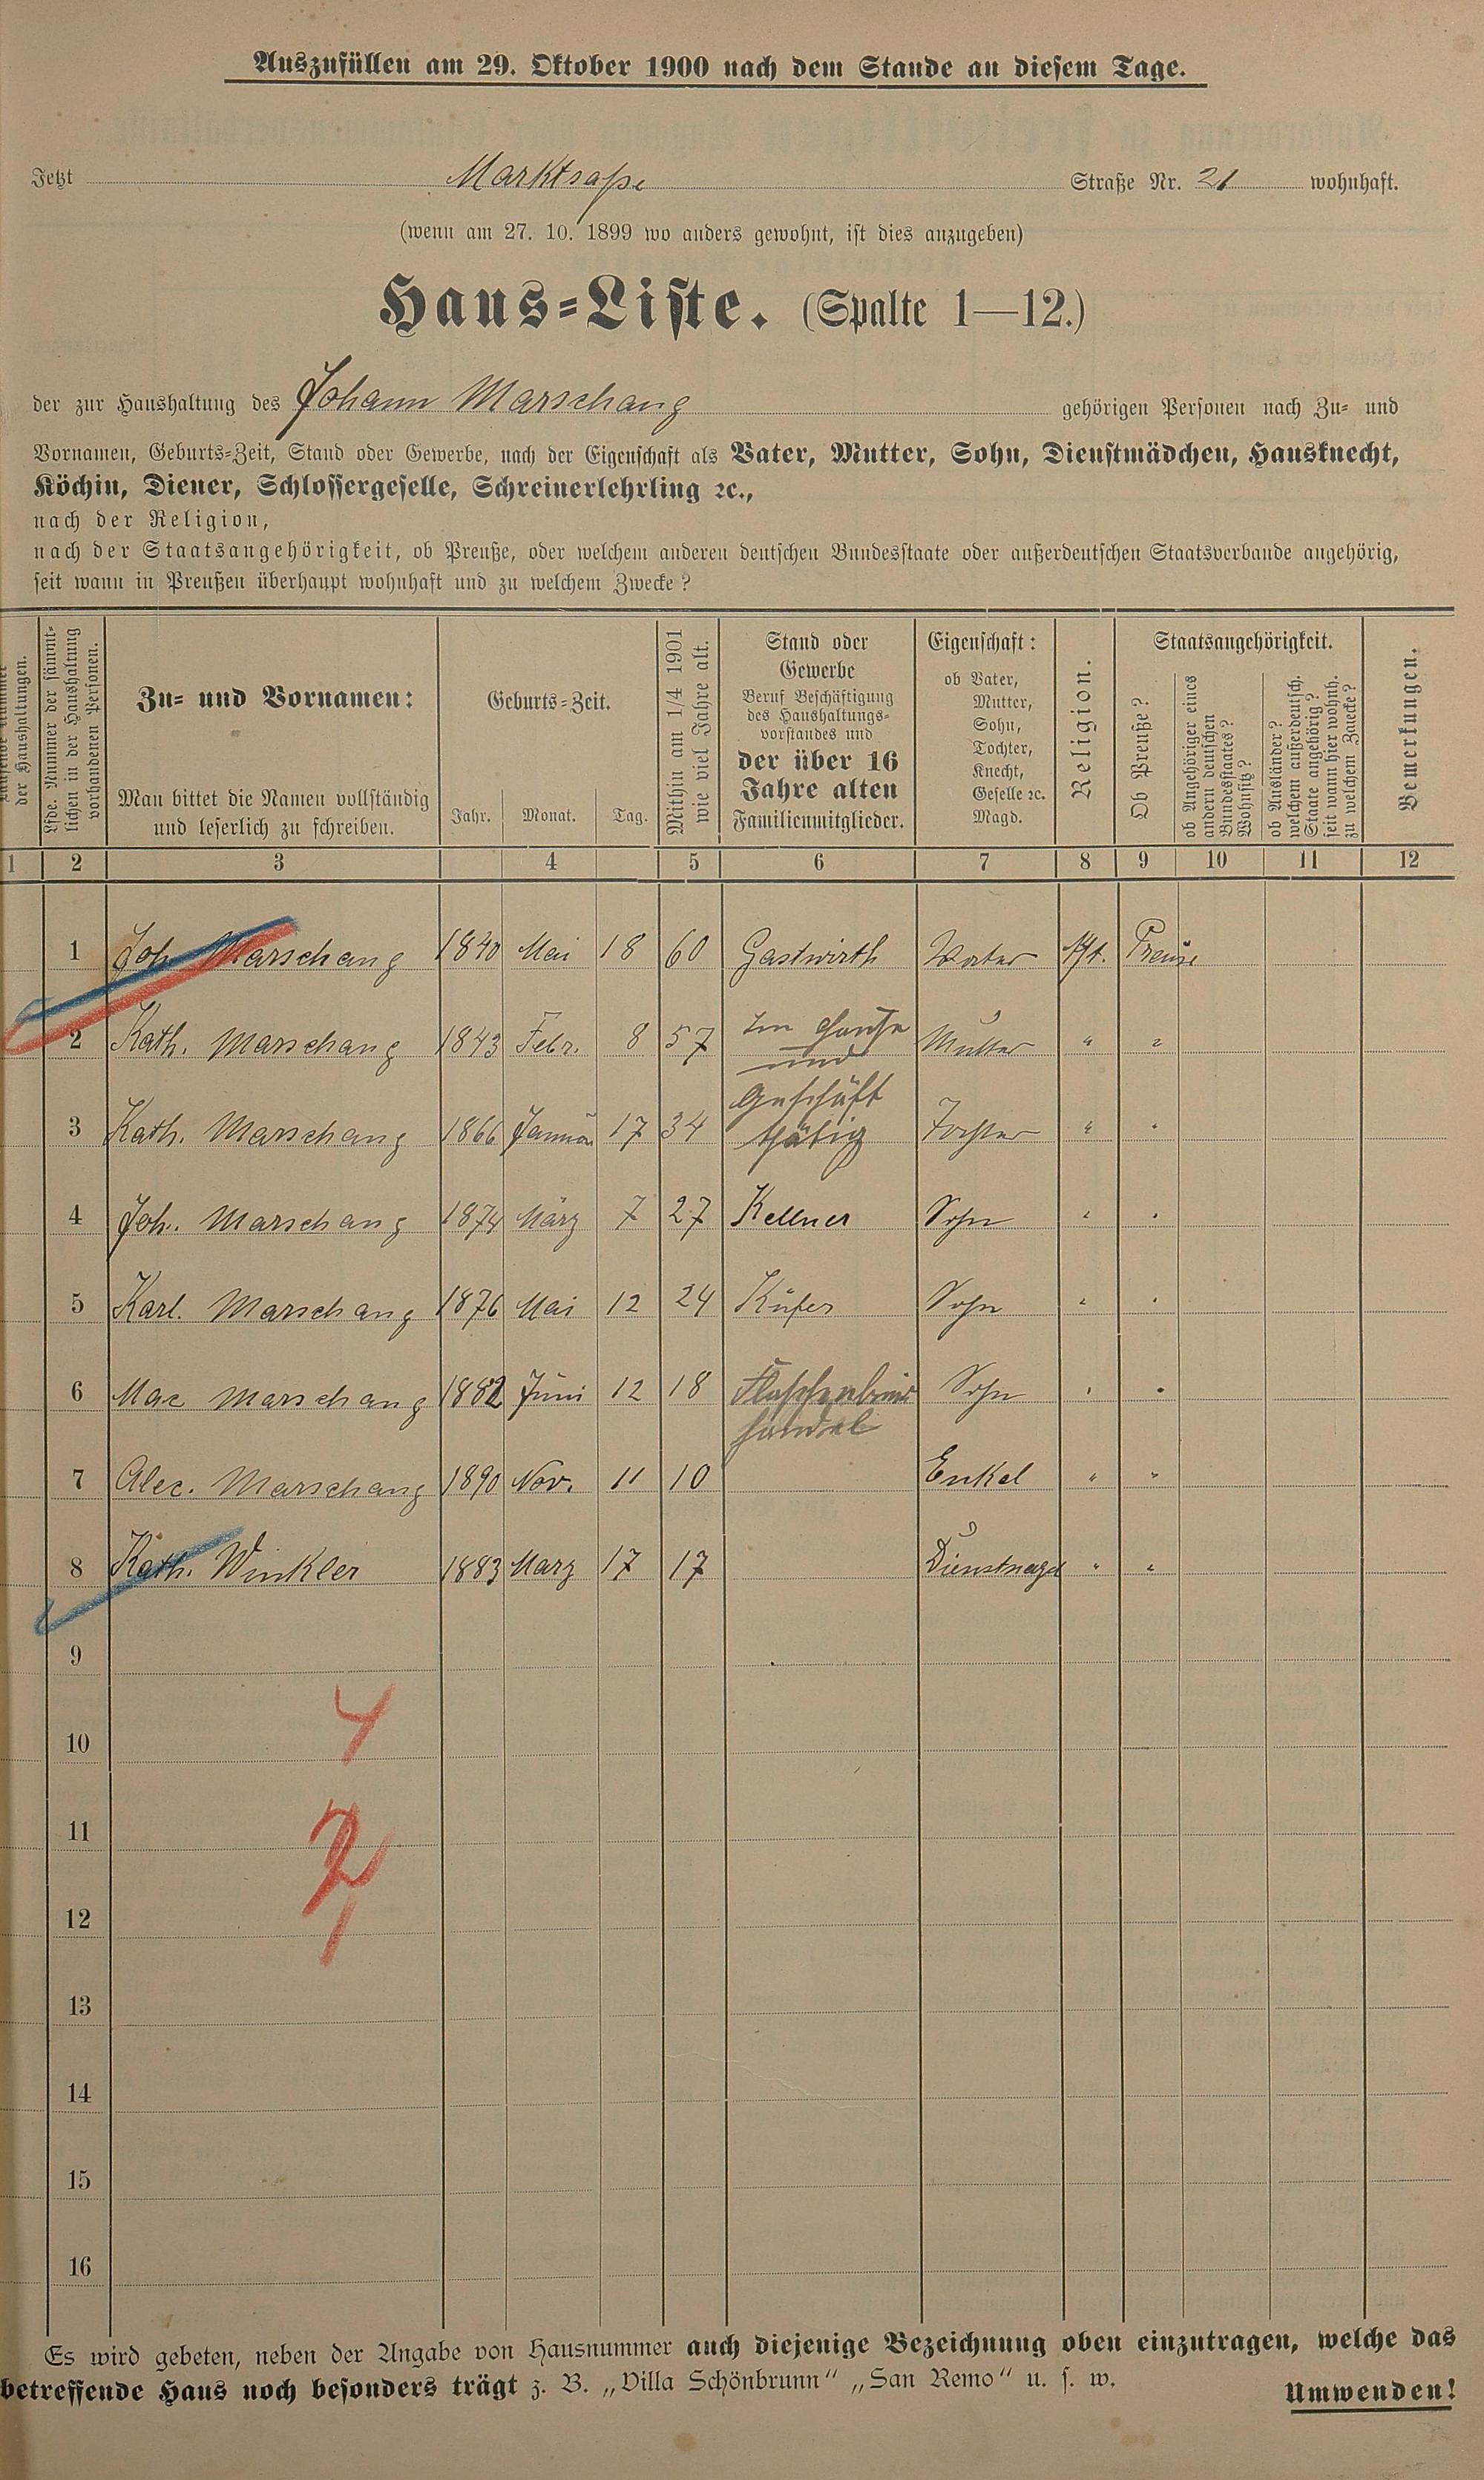 Auszufüllen am 29. Oktober 1900 nach dem Stande an diesem Tage.
Jetzt Marktsaße Straße Nr. 21 wohnhaft.
(wenn am 27. 10. 1899 wo anders gewohnt, ist dies anzugeben)
Haus=Liste. (Spalte 1—12.)
der zur Haushaltung des Johann Marschang gehörigen Personen nach Zu= und
Vornamen, Geburts=Zeit, Stand oder Gewerbe, nach der Eigenschaft als Vater, Mutter, Sohn, Dienstmädchen, Hausknecht,
Köchin, Diener, Schlossergeselle, Schreinerlehrling ꝛc.,
nach der Religion,
nach der Staatsangehörigkeit, ob Preuße, oder welchem anderen deutschen Bundesstaate oder außerdeutschen Staatsverbande angehörig,
seit wann in Preußen überhaupt wohnhaft und zu welchem Zwecke?
Nummer
der Haushaltungen.
Lfde. Nummer der sämmt-
lichen in der Haushaltung
vorhandenen Personen.
Zu= und Vornamen:
Man bittet die Namen vollständig
und leserlich zu schreiben.
Geburts=Zeit.
Jahr. Monat. Tag.
Mithin am 1/4 1901
wie viel Jahre alt.
Stand oder
Gewerbe
Beruf Beschäftigung
des Haushaltungs-
vorstandes und
der über 16
Jahre alten
Familienmitglieder.
Eigenschaft:
ob Vater,
Mutter,
Sohn,
Tochter,
Knecht,
Geselle ꝛc.
Magd.
Religion.
Staatsangehörigkeit.
Ob Preuße?
ob Angehöriger eines
andern deutschen
Bundesstaates?
Wohnsitz?
ob Ausländer?
welchem außerdeutsch.
Staate angehörig?
seit wann hier wohnh.
zu welchem Zwecke?
Bemerkungen.
1 2 3 4 5 6 7 8 9 10 11 12
1 Joh. Marschang 1840 Mai 18 60 Gastwirth Vater Preuße
2 Kath. Marschang 1843 Febr. 8 57 Im Hause Mutter " "
und
Geschäft
3 Kath. Marschang 1866 Januar 17 34 thätig Tochter " "
4 Joh. Marschang 1874 März 7 27 Kellner Sohn " "
5 Karl. Marschang 1876 Mai 12 24 Küfer Sohn " "
6 Max Marschang 1882 Juni 12 18 Flaschenbier Sohn " "
handel
7 Alex. Marschang 1890 Nov. 11 10 Enkel " "
8 Kath. Winkler 1883 Marz 17 17 Dienstmagd " "
9
4
10
11
2
12
1
13
14
15
16
Es wird gebeten, neben der Angabe von Hausnummer auch diejenige Bezeichnung oben einzutragen, welche das
betreffende Haus noch besonders trägt z. B. „Villa Schönbrunn“ „San Remo“ u. s. w.
Umwenden!